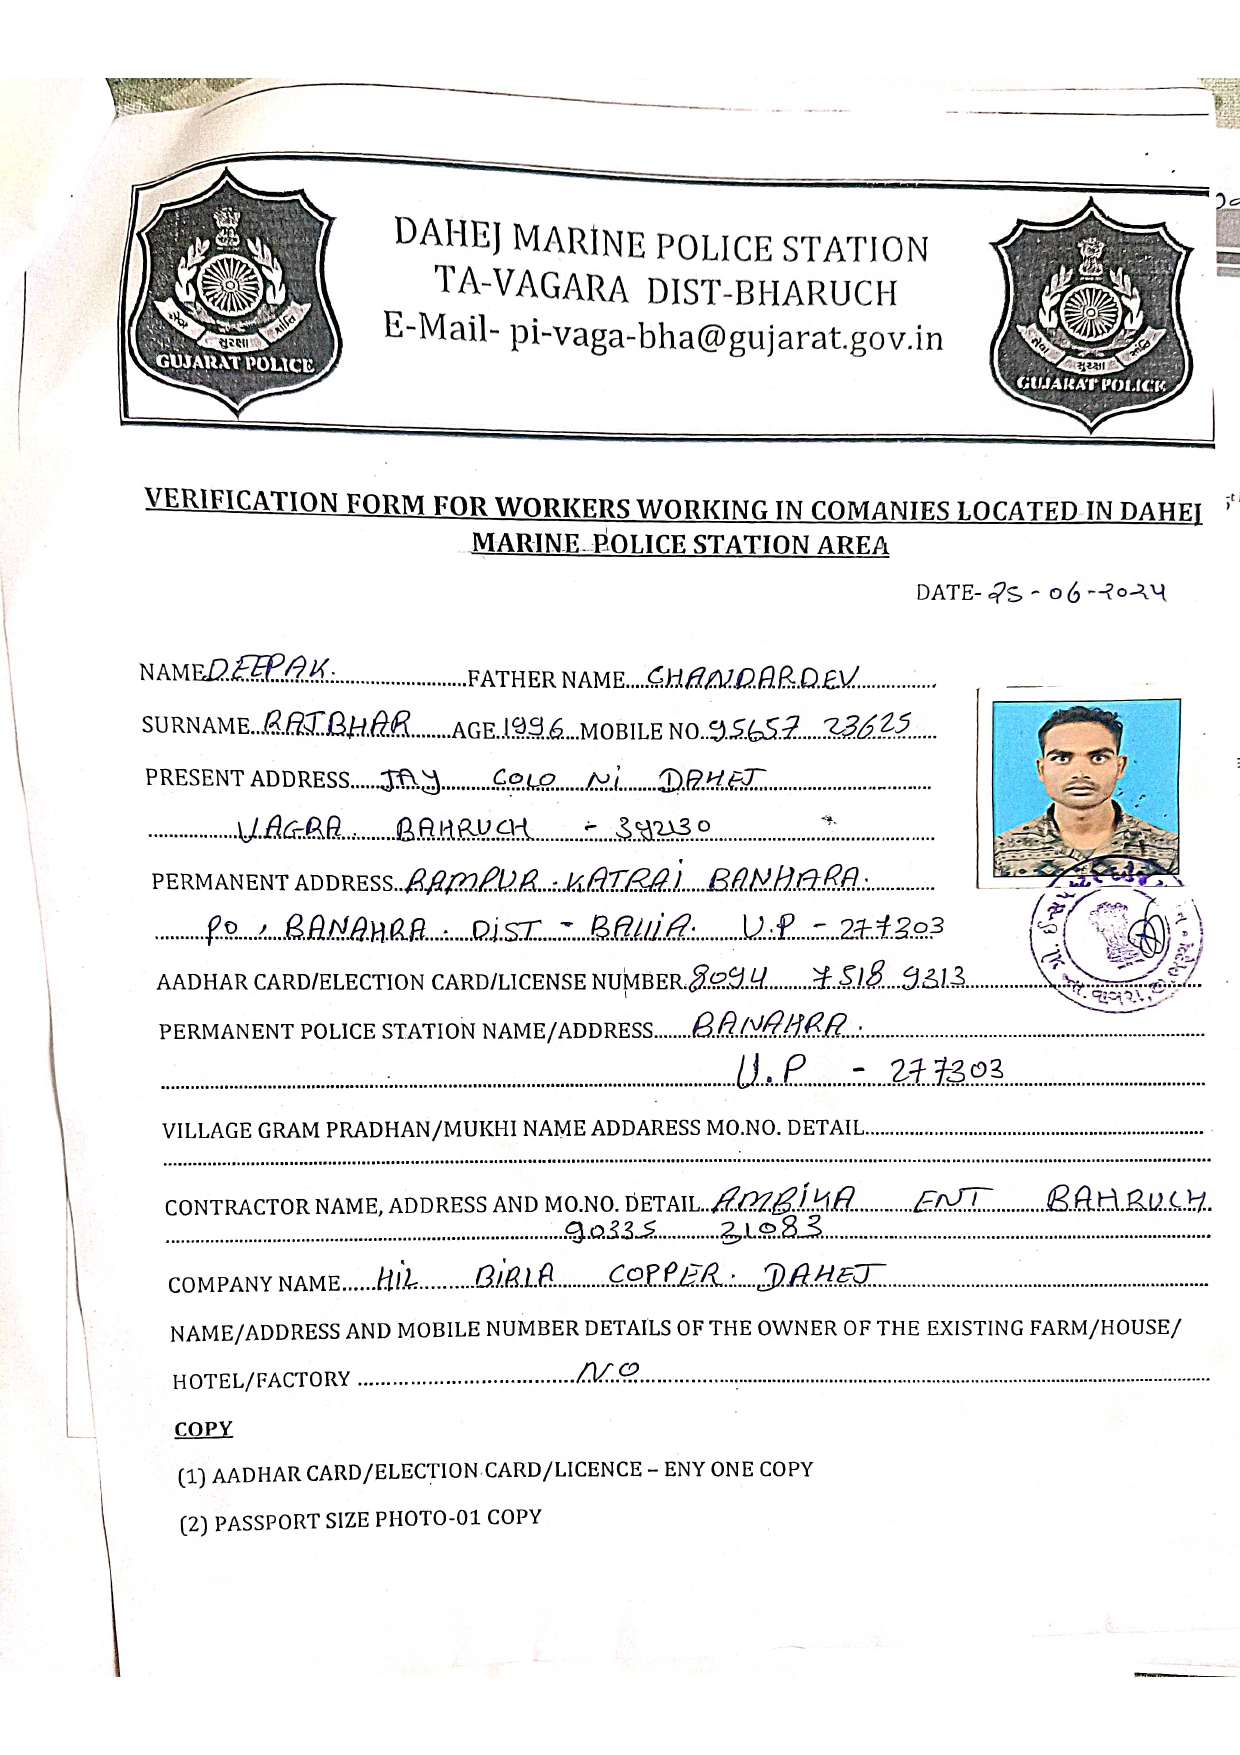 DAHEJ MARINE POLICE STATION
TA-VAGARA DIST-BHARUCH
E-Mail- pi-vaga-bha@gujarat.gov.in
સેવા સુરક્ષા શાંતિ
GUJARAT POLICE
સેવા સુરક્ષા શાંતિ
GUJARAT POLICE
VERIFICATION FORM FOR WORKERS WORKING IN COMANIES LOCATED IN DAHEJ
MARINE POLICE STATION AREA
DATE- 25-06-2024
NAME DEEPAK. FATHER NAME CHANDARDEV
SURNAME RAJBHAR AGE 1996 MOBILE NO. 95657 23625
PRESENT ADDRESS JAY COLO Ni DAHEJ
VAGRA. BAHRUCH - 392130
PERMANENT ADDRESS RAMPUR. KATRAi BANHARA.
PO, BANAHRA. DiST - BAllIA. U.P - 277303
AADHAR CARD/ELECTION CARD/LICENSE NUMBER 8094 7518 9313
PERMANENT POLICE STATION NAME/ADDRESS BANAHRA.
U.P - 277303
VILLAGE GRAM PRADHAN/MUKHI NAME ADDARESS MO.NO. DETAIL
CONTRACTOR NAME, ADDRESS AND MO.NO. DETAIL AMBiKA ENT BAHRUCH
90335 21083
COMPANY NAME HiL BiRlA COPPER. DAHEJ
NAME/ADDRESS AND MOBILE NUMBER DETAILS OF THE OWNER OF THE EXISTING FARM/HOUSE/
HOTEL/FACTORY NO
COPY
(1) AADHAR CARD/ELECTION CARD/LICENCE – ENY ONE COPY
(2) PASSPORT SIZE PHOTO-01 COPY